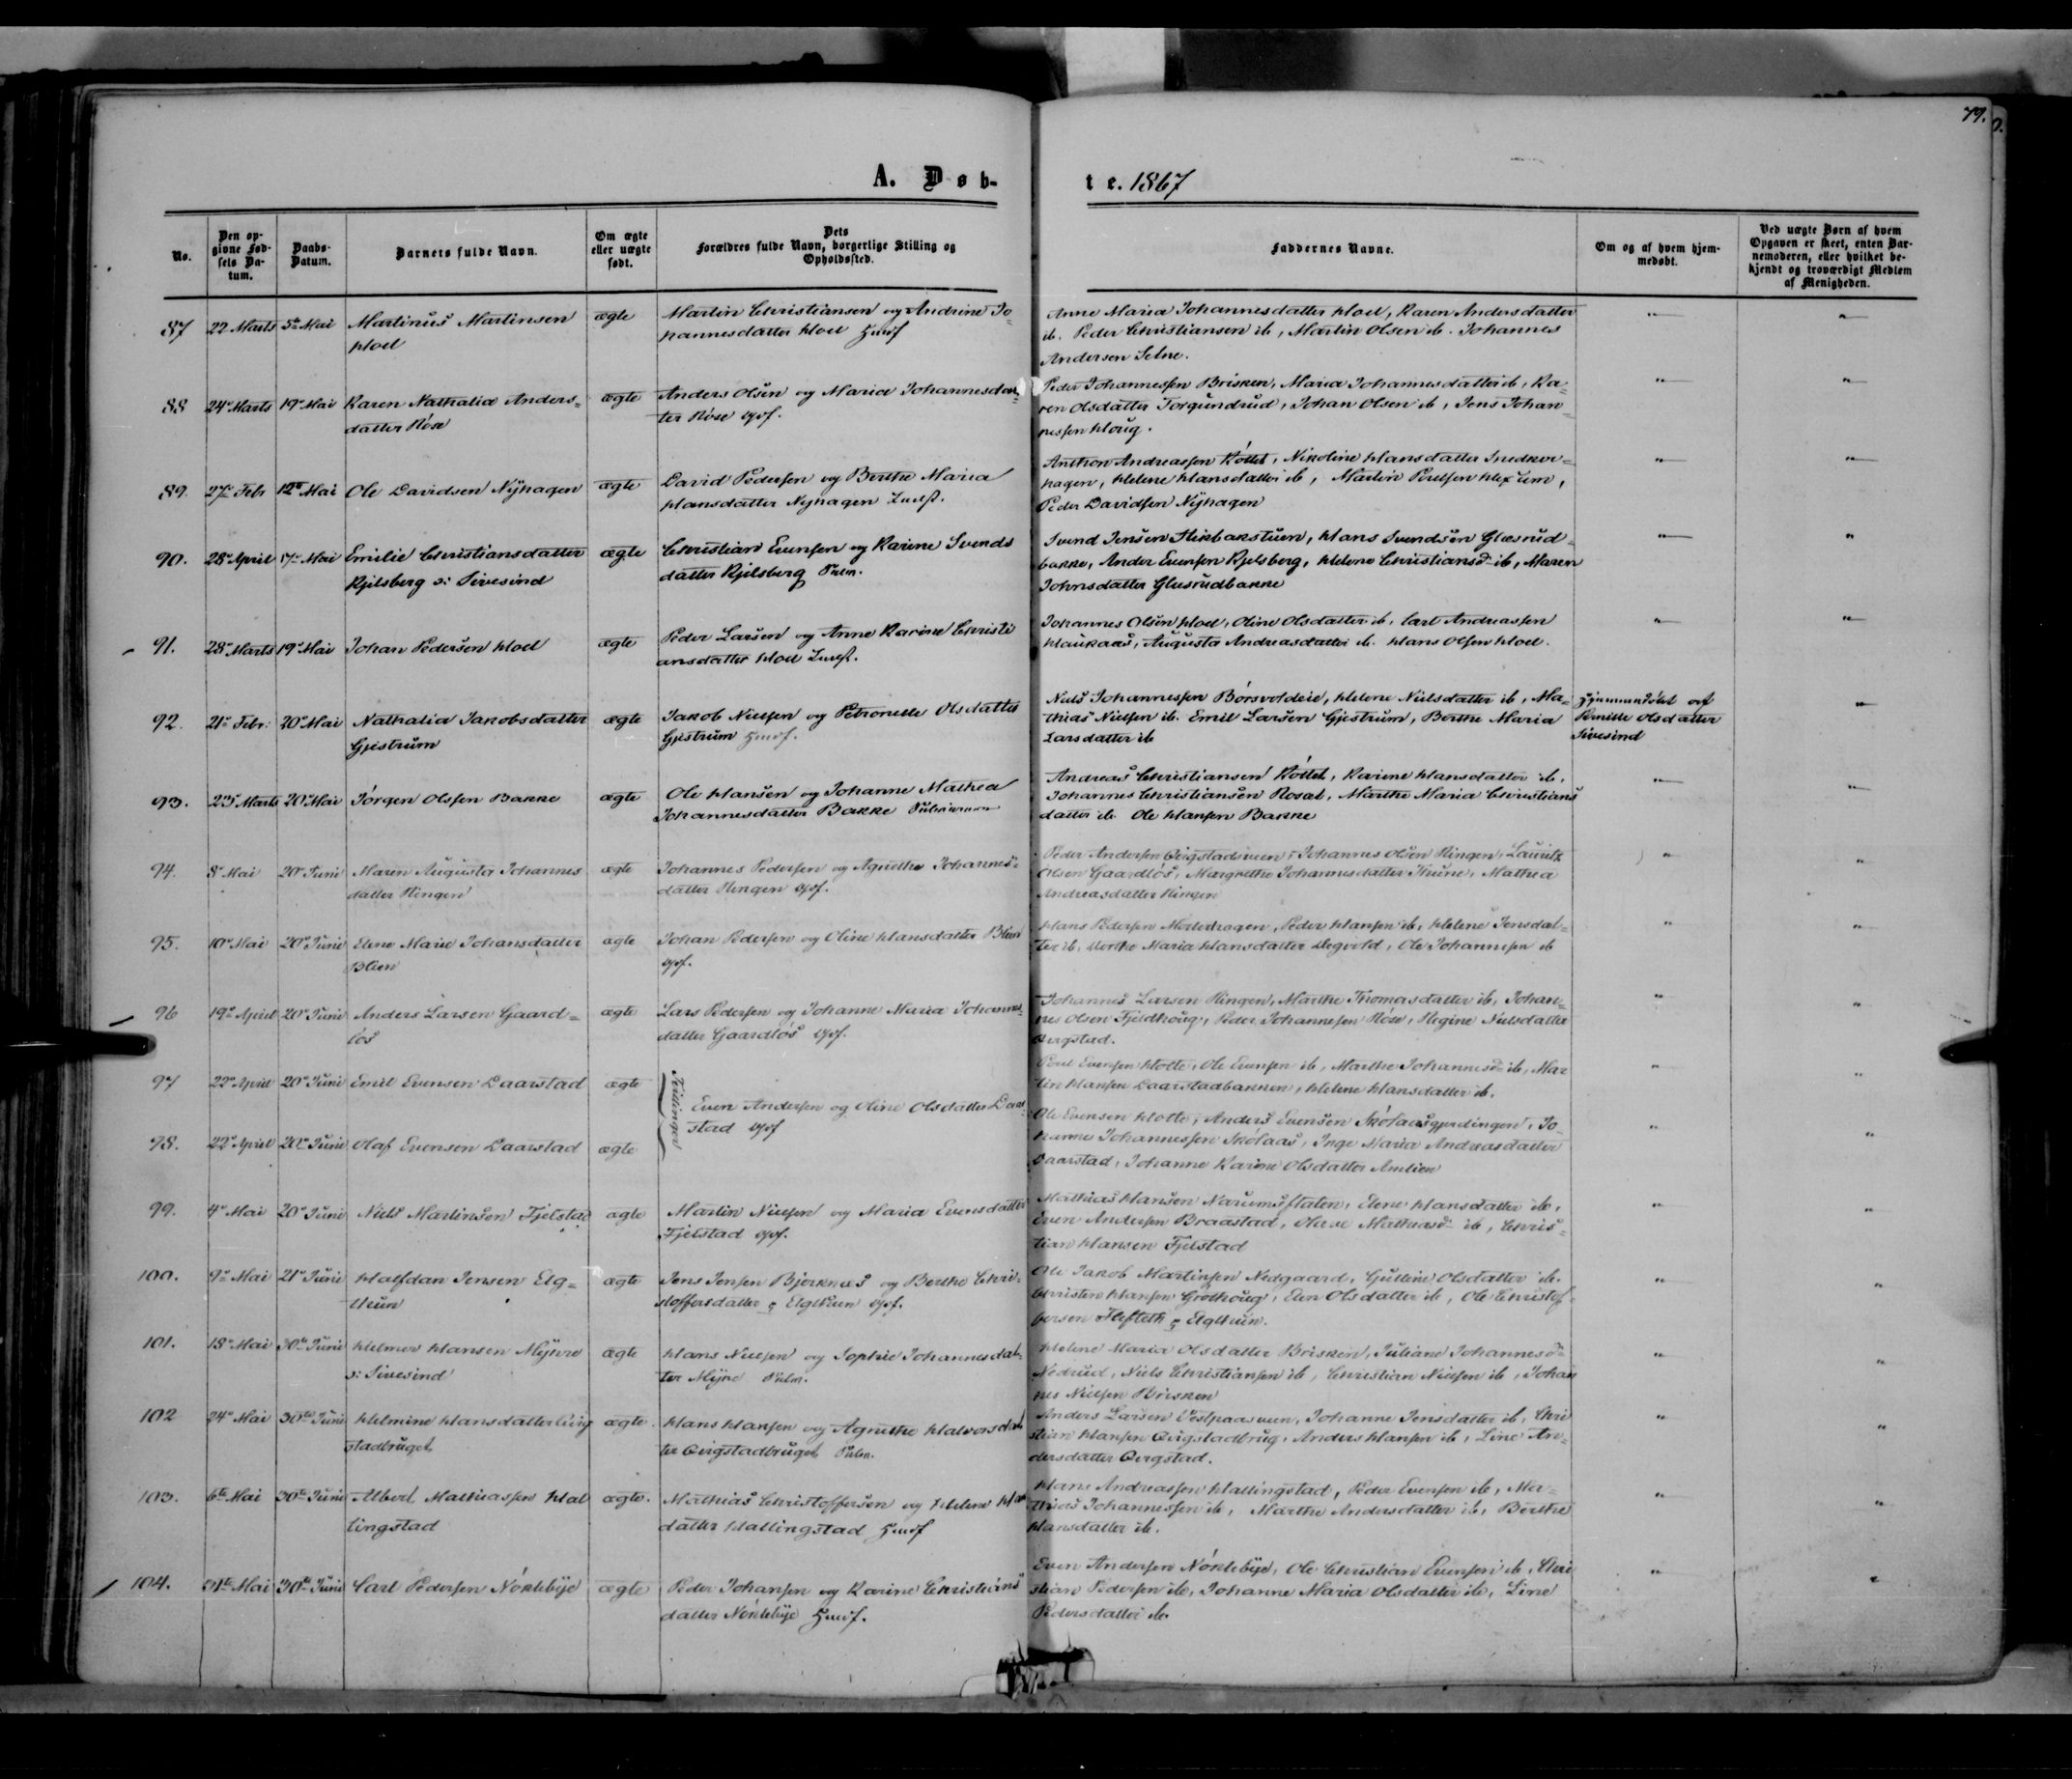 79.
A. Døb-
te. 1867
No.
Den op-
givne Fød-
sels Da-
tum.
Daabs-
Datum.
Barnets fulde Navn.
Om ægte
eller uægte
født.
Dets
Forældres fulde Navn, borgerlige Stilling og
Opholdssted.
Faddernes Navne.
Om og af hvem hjem-
medøbt.
Ved uægte Børn af hvem
Opgaven er skeet, enten Bar-
nemoderen, eller hvilket be-
kjendt og troværdigt Medlem
af Menigheden.
87 22 Marts 5te Mai Martinus Martinsen ægte Martin Christiansen og Andrine Jo-
Hoel hannesdatter Hoel
Anne Maria Johannesdatter Hoel, Karen Andersdatter
ib. Peder Christiansen ib, Martin Olsen ib. Johannes
Andersen Selne.
88 24de Marts 19de Mai Karen Nathalia Anders= ægte Anders Olsen og Maria Johannesdat-
datter Røse ter Røse
Peder Johannessen Brisken, Maria Johannesdatter ib, Ka-
ren Olsdatter Torgundrud, Johan Olsen ib, Jens Johan=
nessen Houg.
89. 27de Febr 12te Mai Ole Davidsen Nyhagen ægte David Pedersen og Berthe Maria
Hansdatter Nyhagen Indst.
Anthon Andreassen Køllet, Nikoline Hansdatter Snedker=
hagen, Helene Hansdatter ib, Martin Poulsen Hexum,
Peder Davidsen Nyhagen
90. 28de April 17de Mai Emilie Christiansdatter ægte Christian Evensen og Karine Svends
Kjelsberg v: Sivesind datter Kjelsberg Huusm.
Svend Jensen Stikbakstuen, Hans Svendsen Glæsrud=
bakke, Ander Evensen Kjelsberg, Helene Christiansd. ib, Maren
Johnsdatter Glæsrudbakke
91. 28de Marts 19de Mai Johan Pedersen Hoel ægte Peder Larsen og Anne Karine Christi
ansdatter Hoel Indst.
Johannes Olsen Hoel, Oline Olsdatter ib, Carl Andreassen
Haukaas, Augusta Andreasdatter ib. Hans Olsen Hoel.
92. 21de Febr: 20de Mai Nathalia Jakobsdatter ægte Jakob Nielsen og Petronelle Olsdatter
Gjestrum Gjestrum
Niels Johannessen Børsvoldeie, Helene Nielsdatter ib, Ma-
thias Nielsen ib. Emil Larsen Gjestrum, Berthe Maria
Larsdatter ib
Hjemmedøbt af
Pernille Olsdatter
Sivesind
93. 23de Marts 20de Mai Jørgen Olsen Bakke ægte Ole Hansen og Johanne Mathea
Johannesdatter Bakke Huusmænd
Andreas Christiansen Køllet, Karine Hansdatter ib.
Johannes Christiansen Rosal, Marthe Maria Christians
datter ib. Ole Hansen Bakke
94. 8de Mai 20de Juni Maren Augusta Johannes ægte Johannes Pedersen og Agnethe Johannes-
datter Ringen datter Ringen
Peder Andersen Qvigstadsveen, Johannes Olsen Ringen, Lauritz
Olsen Gaardløs, Margrethe Johannesdatter Thune, Mathea
Andreasdatter Ringen
95. 10de Mai 20de Juni Elene Marie Johansdatter ægte Johan Pedersen og Oline Hansdatter Blien
Blien
Hans Pedersen Mosterhagen, Peder Hansen ib, Helene Jensdat-
ter ib. Berthe Maria Hansdatter Degvold, Ole Johannesen ib
96 19de April 20de Juni Anders Larsen Gaard= ægte Lars Pedersen og Johanne Maria Johannes-
løs datter Gaardløs
Johannes Larsen Ringen, Marthe Thomasdatter ib, Johan=
nes Olsen Fjeldhoug, Peder Johannesen Røse, Regine Nielsdatter
Qvigstad.
97 22de April 20de Juni Emil Evensen Daarstad ægte
Tvillinger
Even Andersen og Oline Olsdatter Daar-
stad
Poul Evensen Holte, Ole Evensen ib, Marthe Johannesd. ib, Mar
tin Hansen Daarstadbakken, Helene Hansdatter ib.
98. 22de April 20de Juni Olaf Evensen Daarstad ægte
Ole Evensen Holte, Anders Evensen Skølaasgjerdingen, Jo-
hanne Johannessen Skølaas, Inge Maria Andreasdatter
Daarstad, Johanne Karine Olsdatter Amlien
99. 4de Mai 20de Juni Niels Martinsen Fjelstad ægte Martin Nielsen og Maria Evensdatter
Fjelstad
Mathias Hansen Narumsflaten, Elene Hansdatter ib,
Even Andersen Braastad, Olave Mathiasd. ib, Chris=
tian Hansen Fjelstad
100. 9de Mai 21de Juni Halfdan Jensen Elg= ægte Jens Jensen Bjerknæs og Berthe Chri-
stoffersdatter
Ole Jakob Martinsen Nedgaard, Gulline Olsdatter ib.
Christen Hansen Grøthoug, Elen Olsdatter ib, Ole Christof-
fersen
101. 18de Mai 30te Juni Helmer Hansen Myhre ægte Hans Nielsen og Sophie Johannesdat-
v: Sivesind ter Myhre Huusm.
Helene Maria Olsdatter Brisken, Juliane Johannesd.
Nedrud, Niels Christiansen ib, Christian Nielsen ib, Johan
nes Nielsen Brisken
102 24de Mai 30te Juni Helmine Hansdatter Qvig ægte Hans Hansen og Agnethe Halvorsdat
stadbruget ter Qvigstadbruget Huusm.
Anders Larsen Vestpaasveen, Johanne Jensdatter ib, Chri
stian Hansen Qvigstadbrug, Anders Hansen ib, Line An-
dersdatter Qvigstad.
103. 6te Mai 30te Juni Albert Mathiassen Hal ægte. Mathias Christoffersen og Helene Hans
lingstad datter Hallingstad
Hans Andreassen Hallingstad, Peder Evensen ib, Ma-
thias Johannessen ib, Marthe Andersdatter ib, Berthe
Hansdatter ib.
104. 31te Mai 30te Juni Carl Pedersen Nøklebye ægte Peder Johansen og Karine Christians
datter Nøklebye
Even Andersen Nøklebye, Ole Christian Evensen ib, Chri
stian Pedersen ib, Johanne Maria Olsdatter ib, Line
Pedersdatter ib.